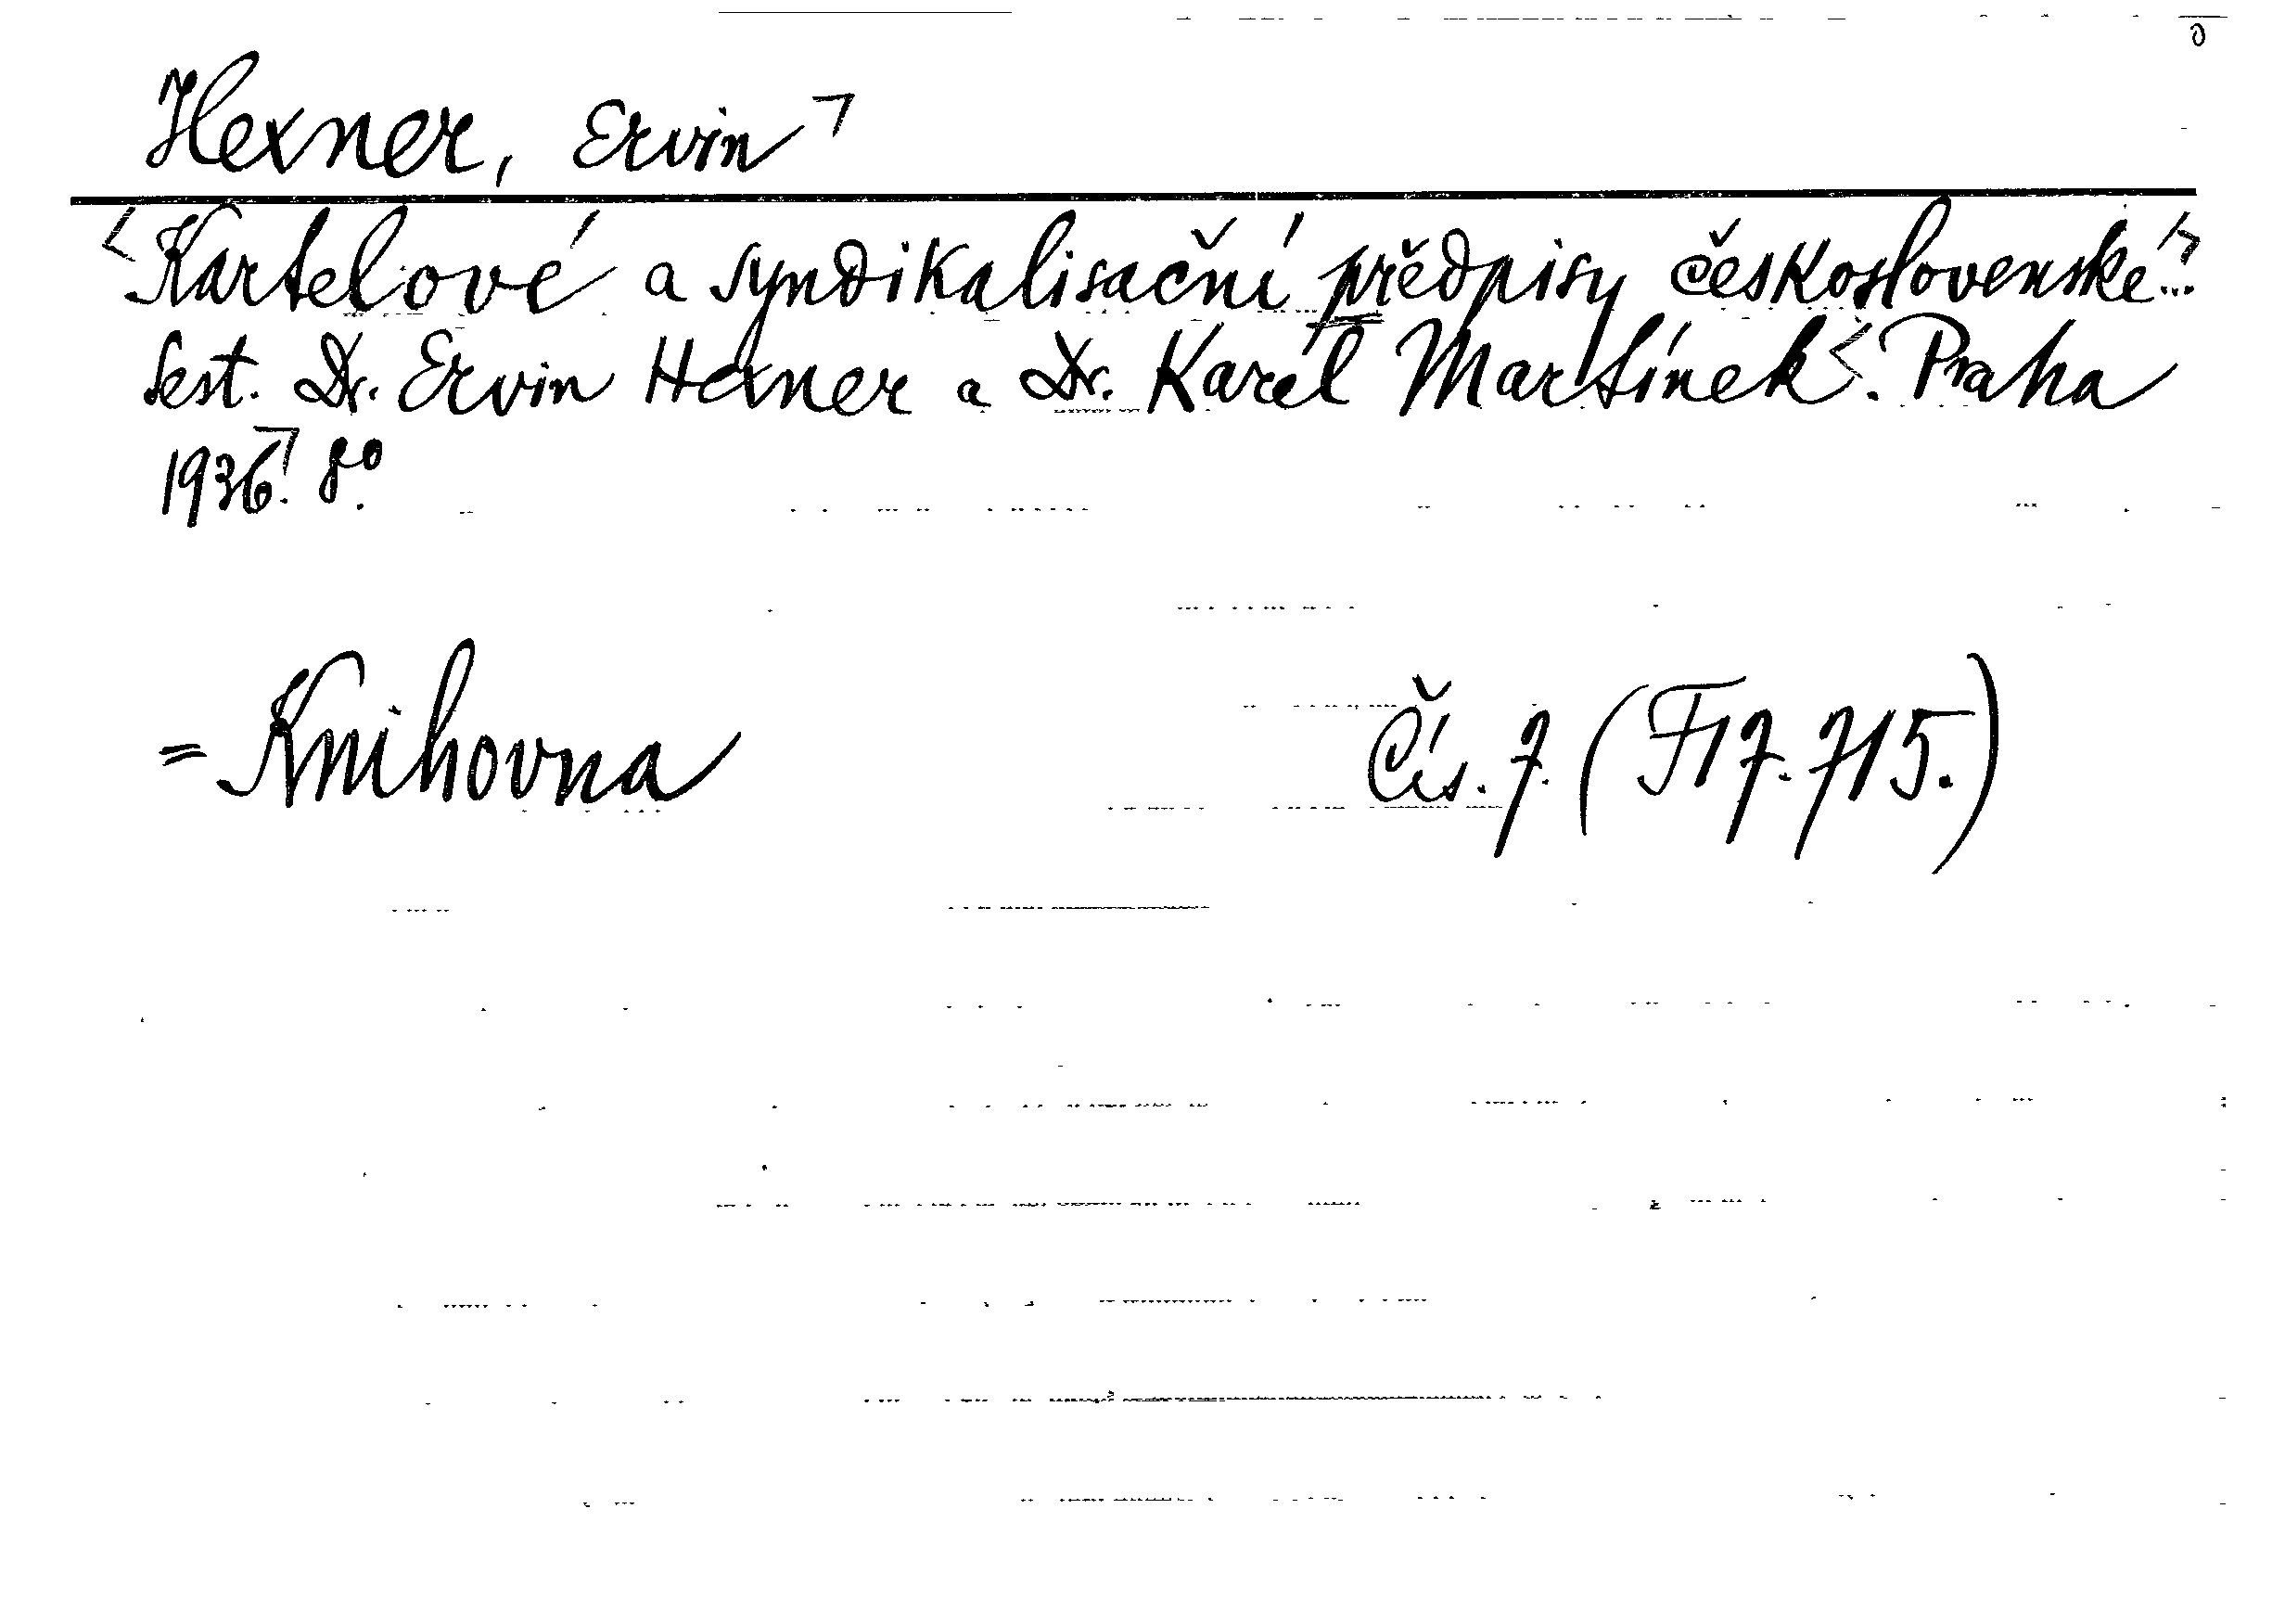 Hexner, Ervin
Kartelové a syndikalisační předpisy československé...
Sest. Dr. Ervin Hexner a Dr. Karel Martínek. Praha
1936. 8°.
= Knihovna Čís. 7. (F 17.715.)